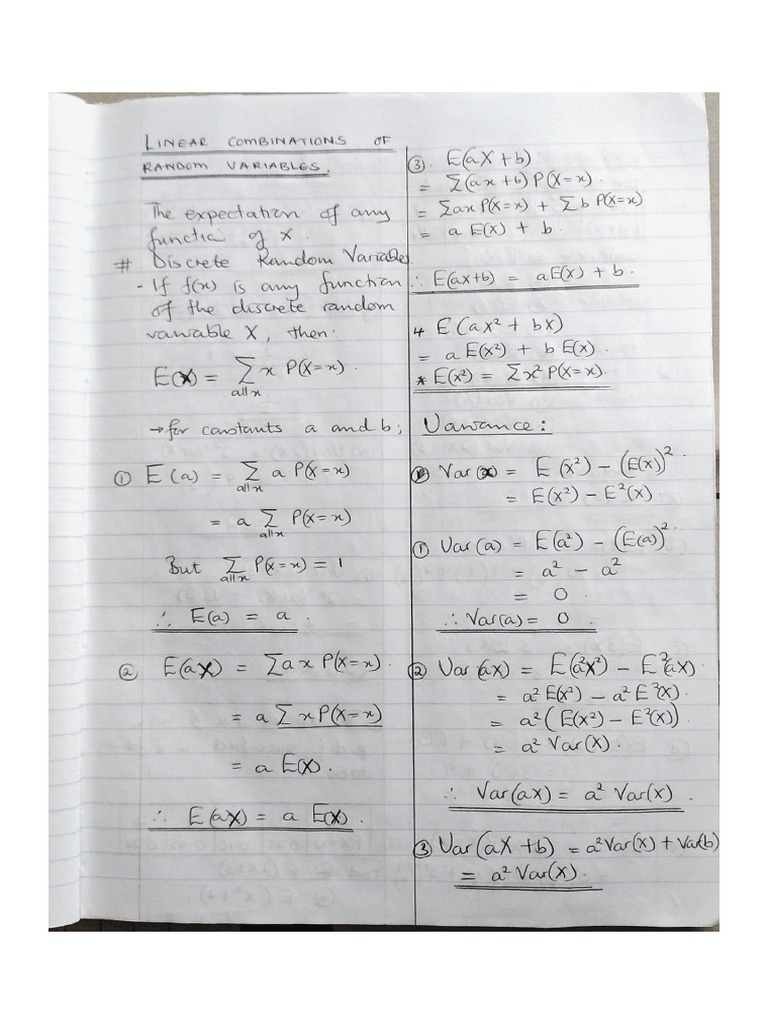 LINEAR COMBINATIONS OF
RANDOM VARIABLES.
The expectation of any
functio of X.
# Discrete Random Variable
- If f(x) is any function
of the discrete random
variable X, then:
E(X) = Σ x P(X=x).
all x
→ for constants a and b;
① E(a) = Σ a P(X=x)
all x
= a Σ P(X=x)
all x
But Σ P(X=x) = 1
all x
∴ E(a) = a.
② E(aX) = Σax P(X=x).
= a Σ x P(X=x)
= a E(X).
∴ E(aX) = a E(X).
③. E(aX+b)
= Σ(ax+b) P(X=x).
= Σax P(X=x) + Σ b P(X=x)
= a E(X) + b.
∴ E(ax+b) = aE(X) + b.
4 E(aX² + bX)
= a E(X²) + b E(X).
* E(X²) = Σx² P(X=x).
Variance:
Var(x) = E(X²) - (E(x))²
= E(X²) - E²(X).
① Var(a) = E(a²) - (E(a))².
= a² - a²
= 0.
∴ Var(a) = 0.
② Var(aX) = E(a²X²) - E²(aX).
= a² E(X²) - a² E²(X).
= a² (E(X²) - E²(X))
= a² Var(X).
∴ Var(aX) = a² Var(X).
③ Var(aX+b) = a²Var(X) + Var(b)
= a² Var(X).